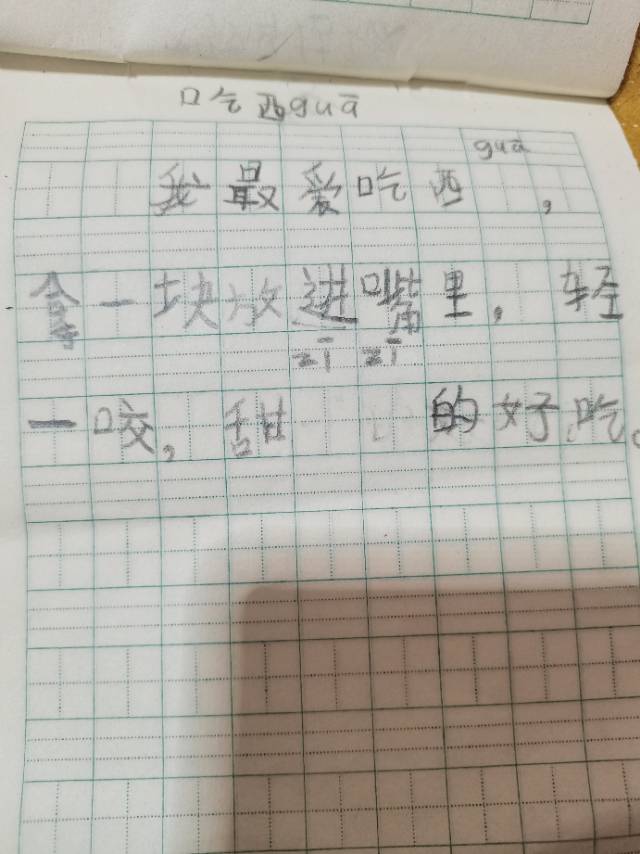 口吃西guā
guā
我最爱吃西，
拿一块放进嘴里，轻
zī zī
一咬，甜的好吃。